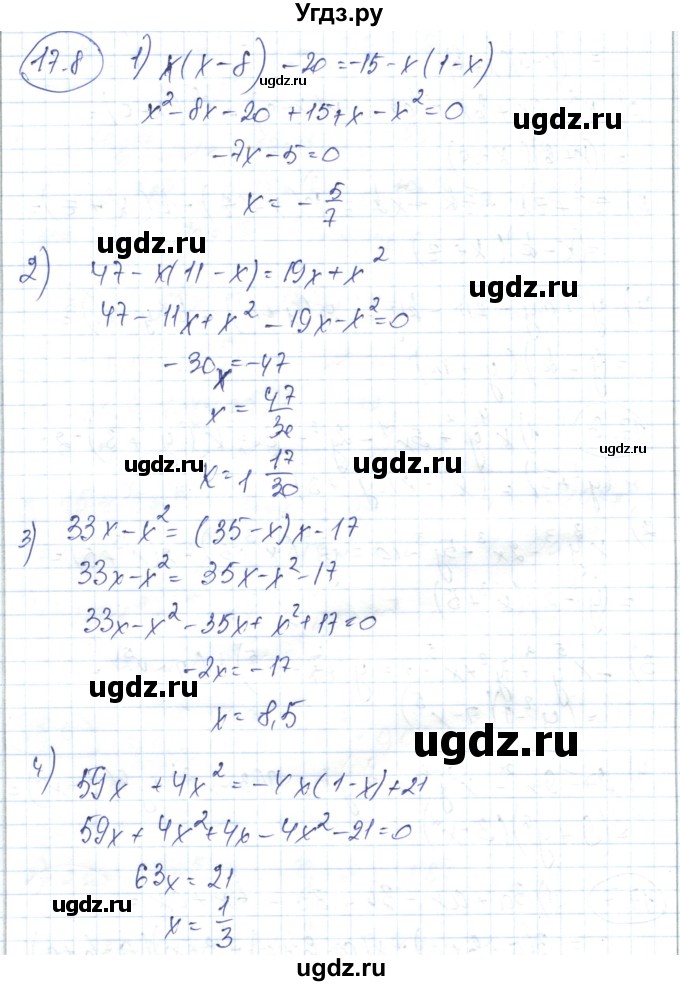 Угдз.ру
17.8 1) x(x-8) -20 = -15 - x(1-x)
x²-8x-20 +15+x-x²=0
ugdz.ru
ugdz.ru
-7x-5=0
x= -5/7
ugdz.ru
2) 47-x(11-x)=19x+x²
ugdz.ru
47-11x+x²-19x-x²=0
-30x=-47
x= 47/30
ugdz.ru
x=1 17/30
ugdz.ru
ugdz.ru
3) 33x-x²= (35-x)x-17
33x-x²= 35x-x²-17
33x-x²-35x+x²+17=0
-2x=-17
ugdz.ru
x=8,5
ugdz.ru
4) 59x +4x²=-4x(1-x)+21
59x+4x²+4x-4x²-21=0
63x=21
ugdz.ru
x= 1/3
ugdz.ru
ugdz.ru